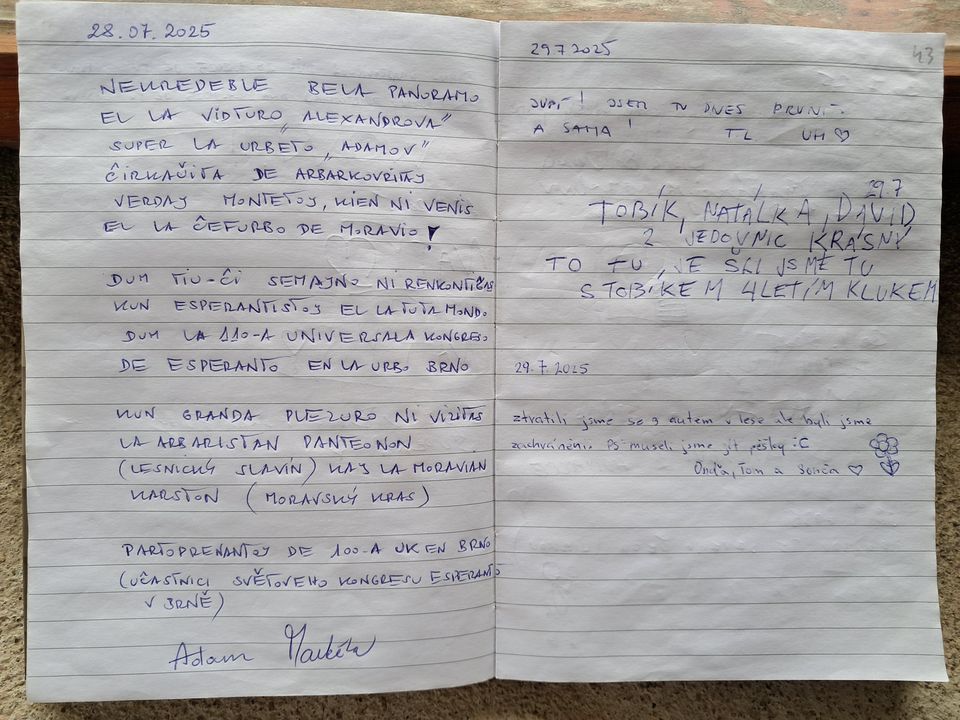 28.07.2025
NEKREDEBLE BELA PANORAMO
EL LA VIDTURO „ALEXANDROVA”
SUPER LA URBETO „ADAMOV”
ĈIRKAŬITA DE ARBARKOVRITAJ
VERDAJ MONTETOJ, KIEN NI VENIS
EL LA ĈEFURBO DE MORAVIO!
DUM TIU-ĈI SEMAJNO NI RENKONTIĜAS
KUN ESPERANTISTOJ EL LA TUTA MONDO
DUM LA 110-A UNIVERSALA KONGRESO
DE ESPERANTO EN LA URBO BRNO
KUN GRANDA PLEZURO NI VIZITAS
LA ARBARISTAN PANTEONON
(LESNICKÝ SLAVÍN) KAJ LA MORAVIAN
KARSTON (MORAVSKÝ KRAS)
PARTOPRENANTOJ DE 100-A UK EN BRNO
(ÚČASTNICI SVĚTOVEHO KONGRESU ESPERANTO
V BRNĚ)
Adam Markéta
29 7 2025
43
JUPÍ! JSEM TU DNES PRVNÍ
A SAMA! TL UH ♡
29.7
TOBÍK, NATÁLKA, DAVID
Z JEDOVNIC KRÁSNÝ
TO TU, JE ŠLI JSME TU
S TOBÍKEM 4LETÍM KLUKEM
29.7.2025
ztratili jsme se s autem v lese ale byli jsme
zachráněni. PS museli jsme jít pěšky :C
Ondra, Tom a Sonča ♡